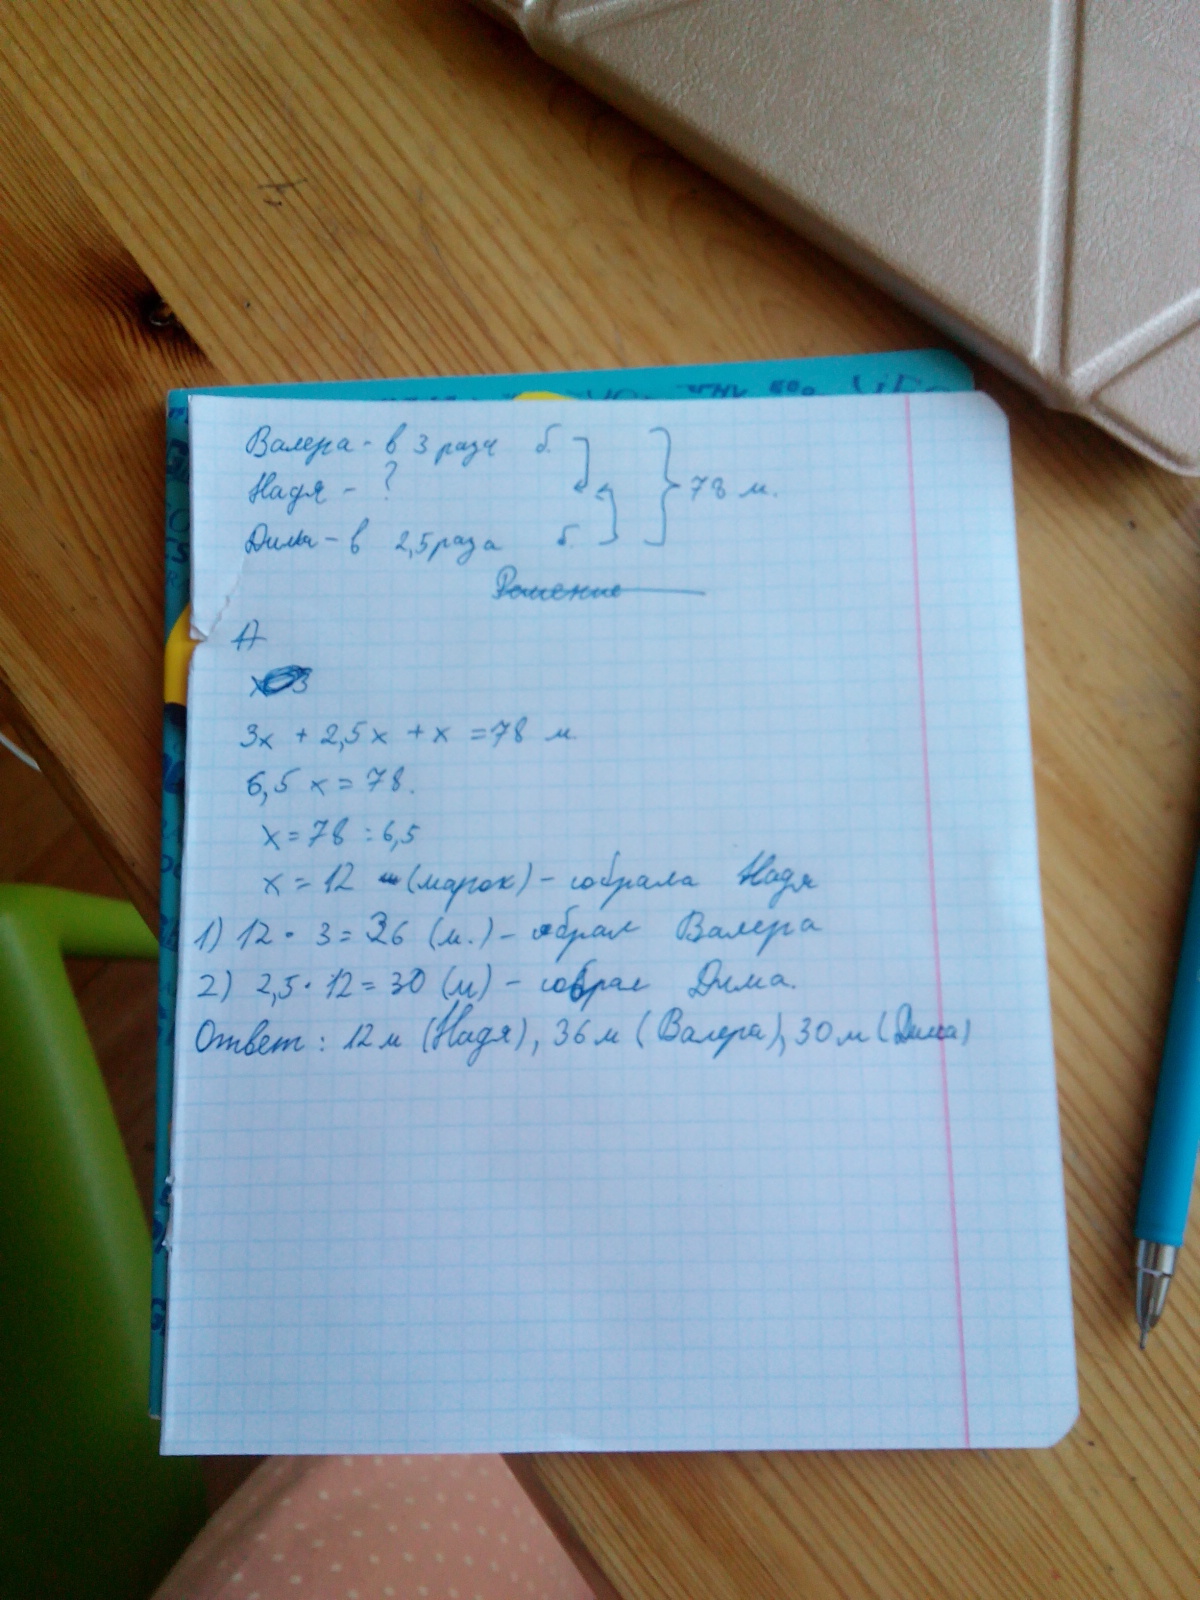 Валера - в 3 раза б.
Надя - ?
78 м.
Дима - в 2,5 раза б.
Решение
1)
3x + 2,5x + x = 78 м
6,5 x = 78.
x = 78 : 6,5
x = 12 (марок) - собрала Надя
1) 12 · 3 = 36 (м.) - собрал Валера
2) 2,5 · 12 = 30 (м) - собрал Дима.
Ответ: 12 м (Надя), 36 м (Валера), 30 м (Дима)